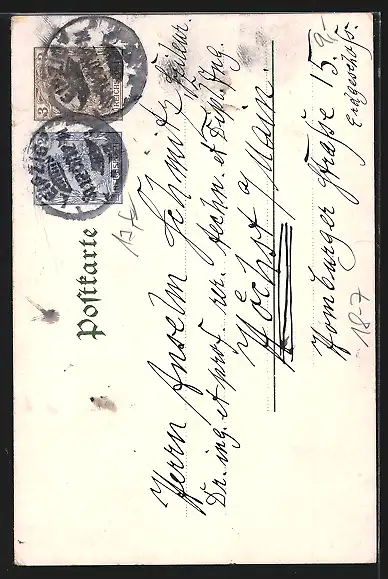 Postkarte
3
Herrn Anselm Schmitz
Dr. ing. et prof. rer. techn. et Dip. Ing.
Höchst a/Main.
Homburger Strasse 15
Erdgeschoß.
18-7